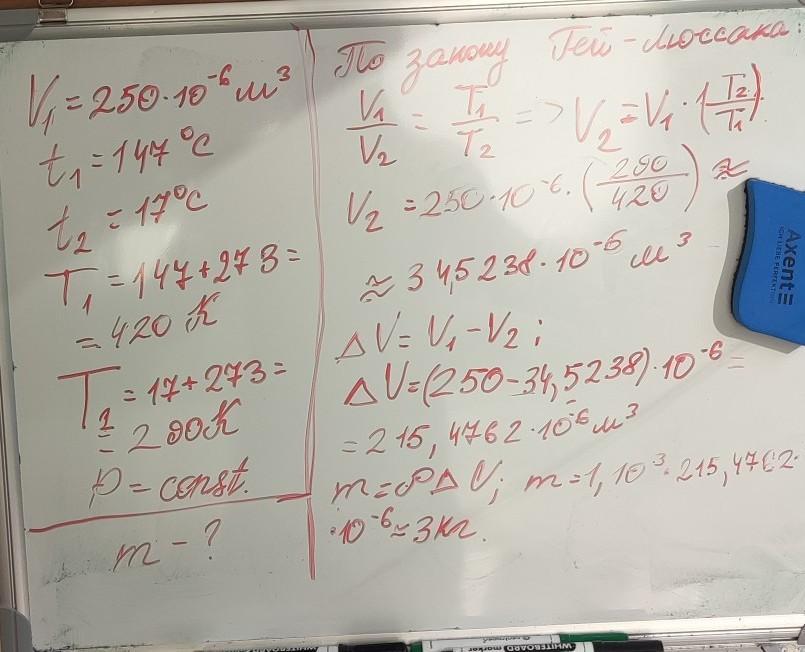 V₁ = 250·10⁻⁶ м³
t₁ = 147°C
t₂ = 17°C
T₁ = 147+273 =
= 420 K
T₂ = 17+273 =
= 290K
p = const.
m - ?
По закону Гей-Люссака:
V₁/V₂ = T₁/T₂ => V₂ = V₁·(T₂/T₁)
V₂ = 250·10⁻⁶·(290/420) ≈
≈ 34,5238·10⁻⁶ м³
ΔV = V₁ - V₂;
ΔV = (250-34,5238)·10⁻⁶ =
= 215,4762·10⁻⁶ м³
m = ρΔV; m = 1,10³·215,4762·
·10⁻⁶ ≈ 3 кг.
Axent
ICH LIEBE PERFEKTION
WHITEBOARD marker
WHITEBOARD